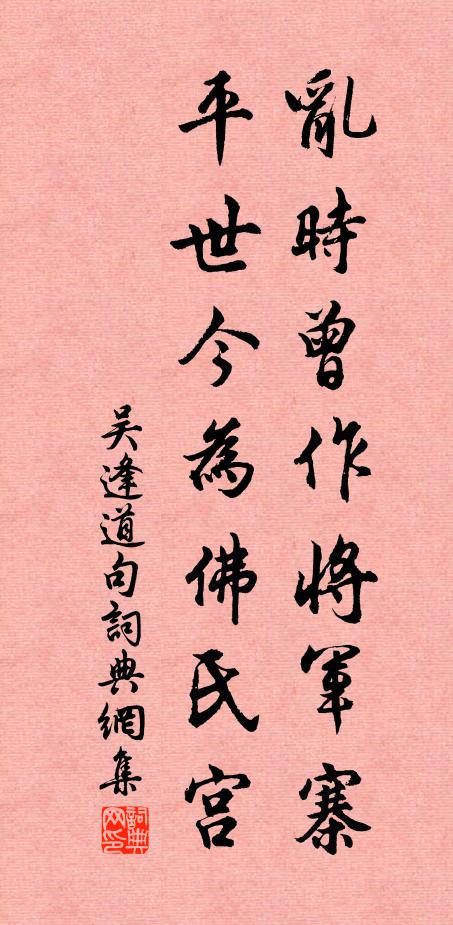 亂時曾作將軍寨
平世今為佛氏宮
吳逢道句詞典網集
詞典网印